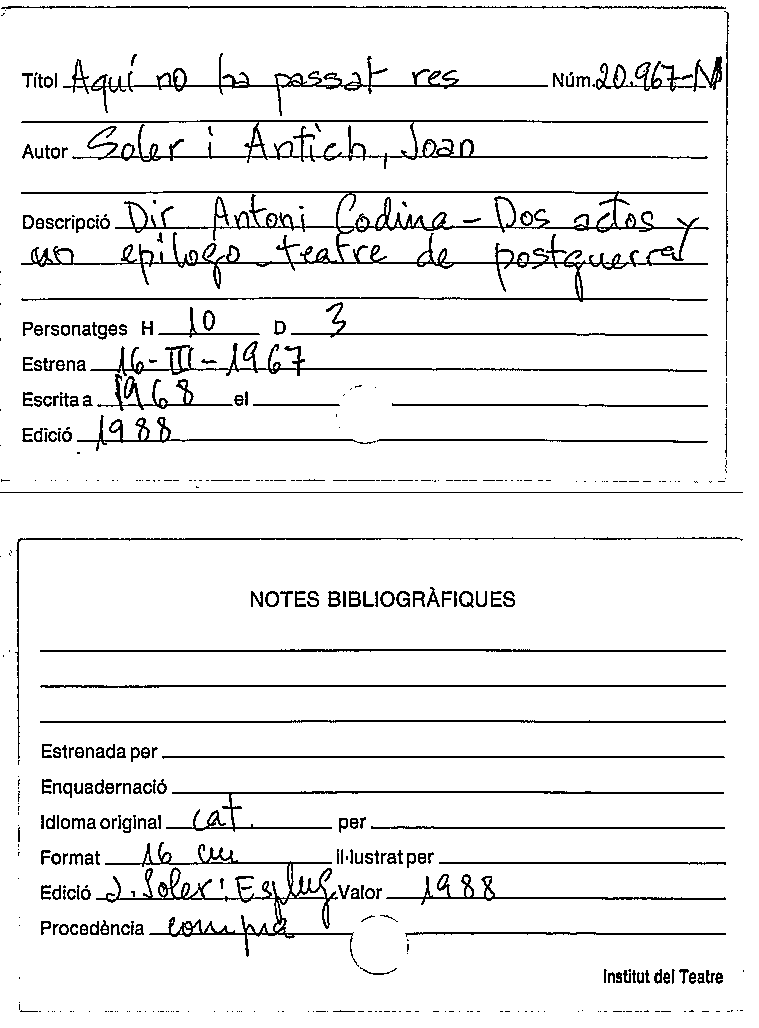 Títol Aquí no ha passat res Núm. 20.967-N
Autor Soler i Antich, Joan
Descripció Dir Antoni Codina - Dos actos y
un epílogo - teatre de postguerra
Personatges H 10 D 3
Estrena 16-III-1967
Escrita a 1968 el
Edició 1988
NOTES BIBLIOGRÀFIQUES
Estrenada per
Enquadernació
Idioma original cat. per
Format 16 cm il·lustrat per
Edició J. Soler: Esplug Valor 1988
Procedència compra
Institut del Teatre